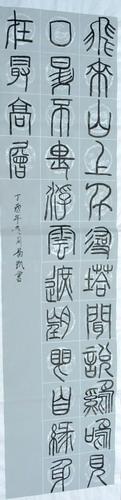 飛來山上千尋塔聞說雞鳴見
日昇不畏浮雲遮望眼自緣身
在最高層
丁酉年月書